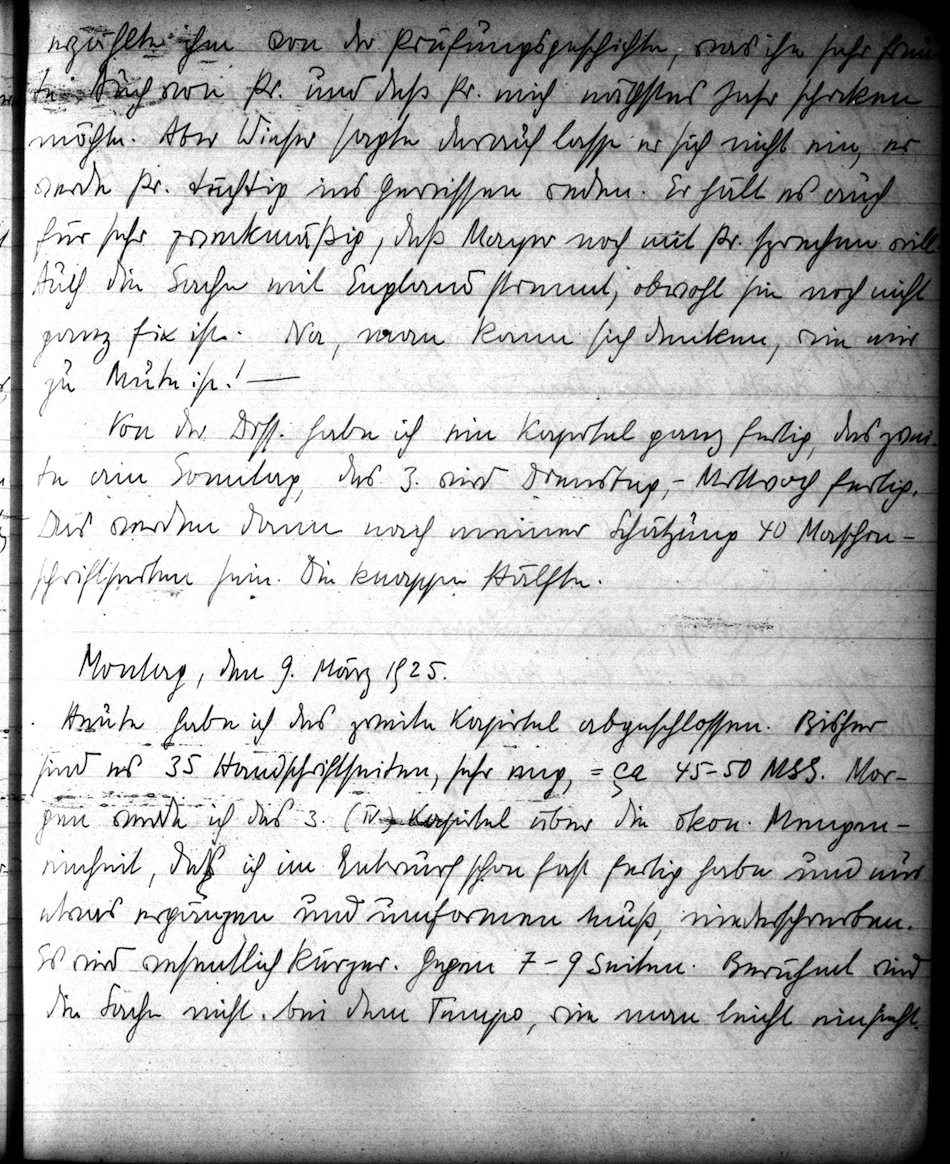 erzählte ihm von der Prüfungsgeschichte, was ihn sehr freu-
te. Auch von Pr. und daß Pr. mich nächstes Jahr schicken
möchte. Aber Wieser sagte darauf lasse er sich nicht ein, er
werde Pr. tüchtig ins Gewissen reden. Er hält es auch
für sehr zweckmäßig, daß Mayer noch mit Pr. sprechen will.
Auch die Sache mit England stimmt, obwohl sie noch nicht
ganz fix ist. Na, man kann sich denken, wie mir
zu Mute ist! —
Von der Diss. habe ich ein Kapitel ganz fertig, das zwei-
te am Sonntag, das 3. wird Dienstag,- Mittwoch fertig.
Das werden dann nach meiner Schätzung 40 Maschin-
schriftseiten sein. Die knappe Hälfte.
Montag, den 9. März 1925.
Heute habe ich das zweite Kapitel abgeschlossen. Bisher
sind es 35 Handschriftseiten, sehr eng, = ca 45-50 MSS. Mor-
gen werde ich das 3. (IV.) Kapitel über die ökon. Mengen-
einheit, das ich im Entwurf schon fast fertig habe und nur
etwas ergänzen und umformen muß, niederschreiben.
Es wird wesentlich kürzer. Gegen 7-9 Seiten. Berühmt wird
die Sache nicht bei dem Tempo, wie man leicht einsieht.